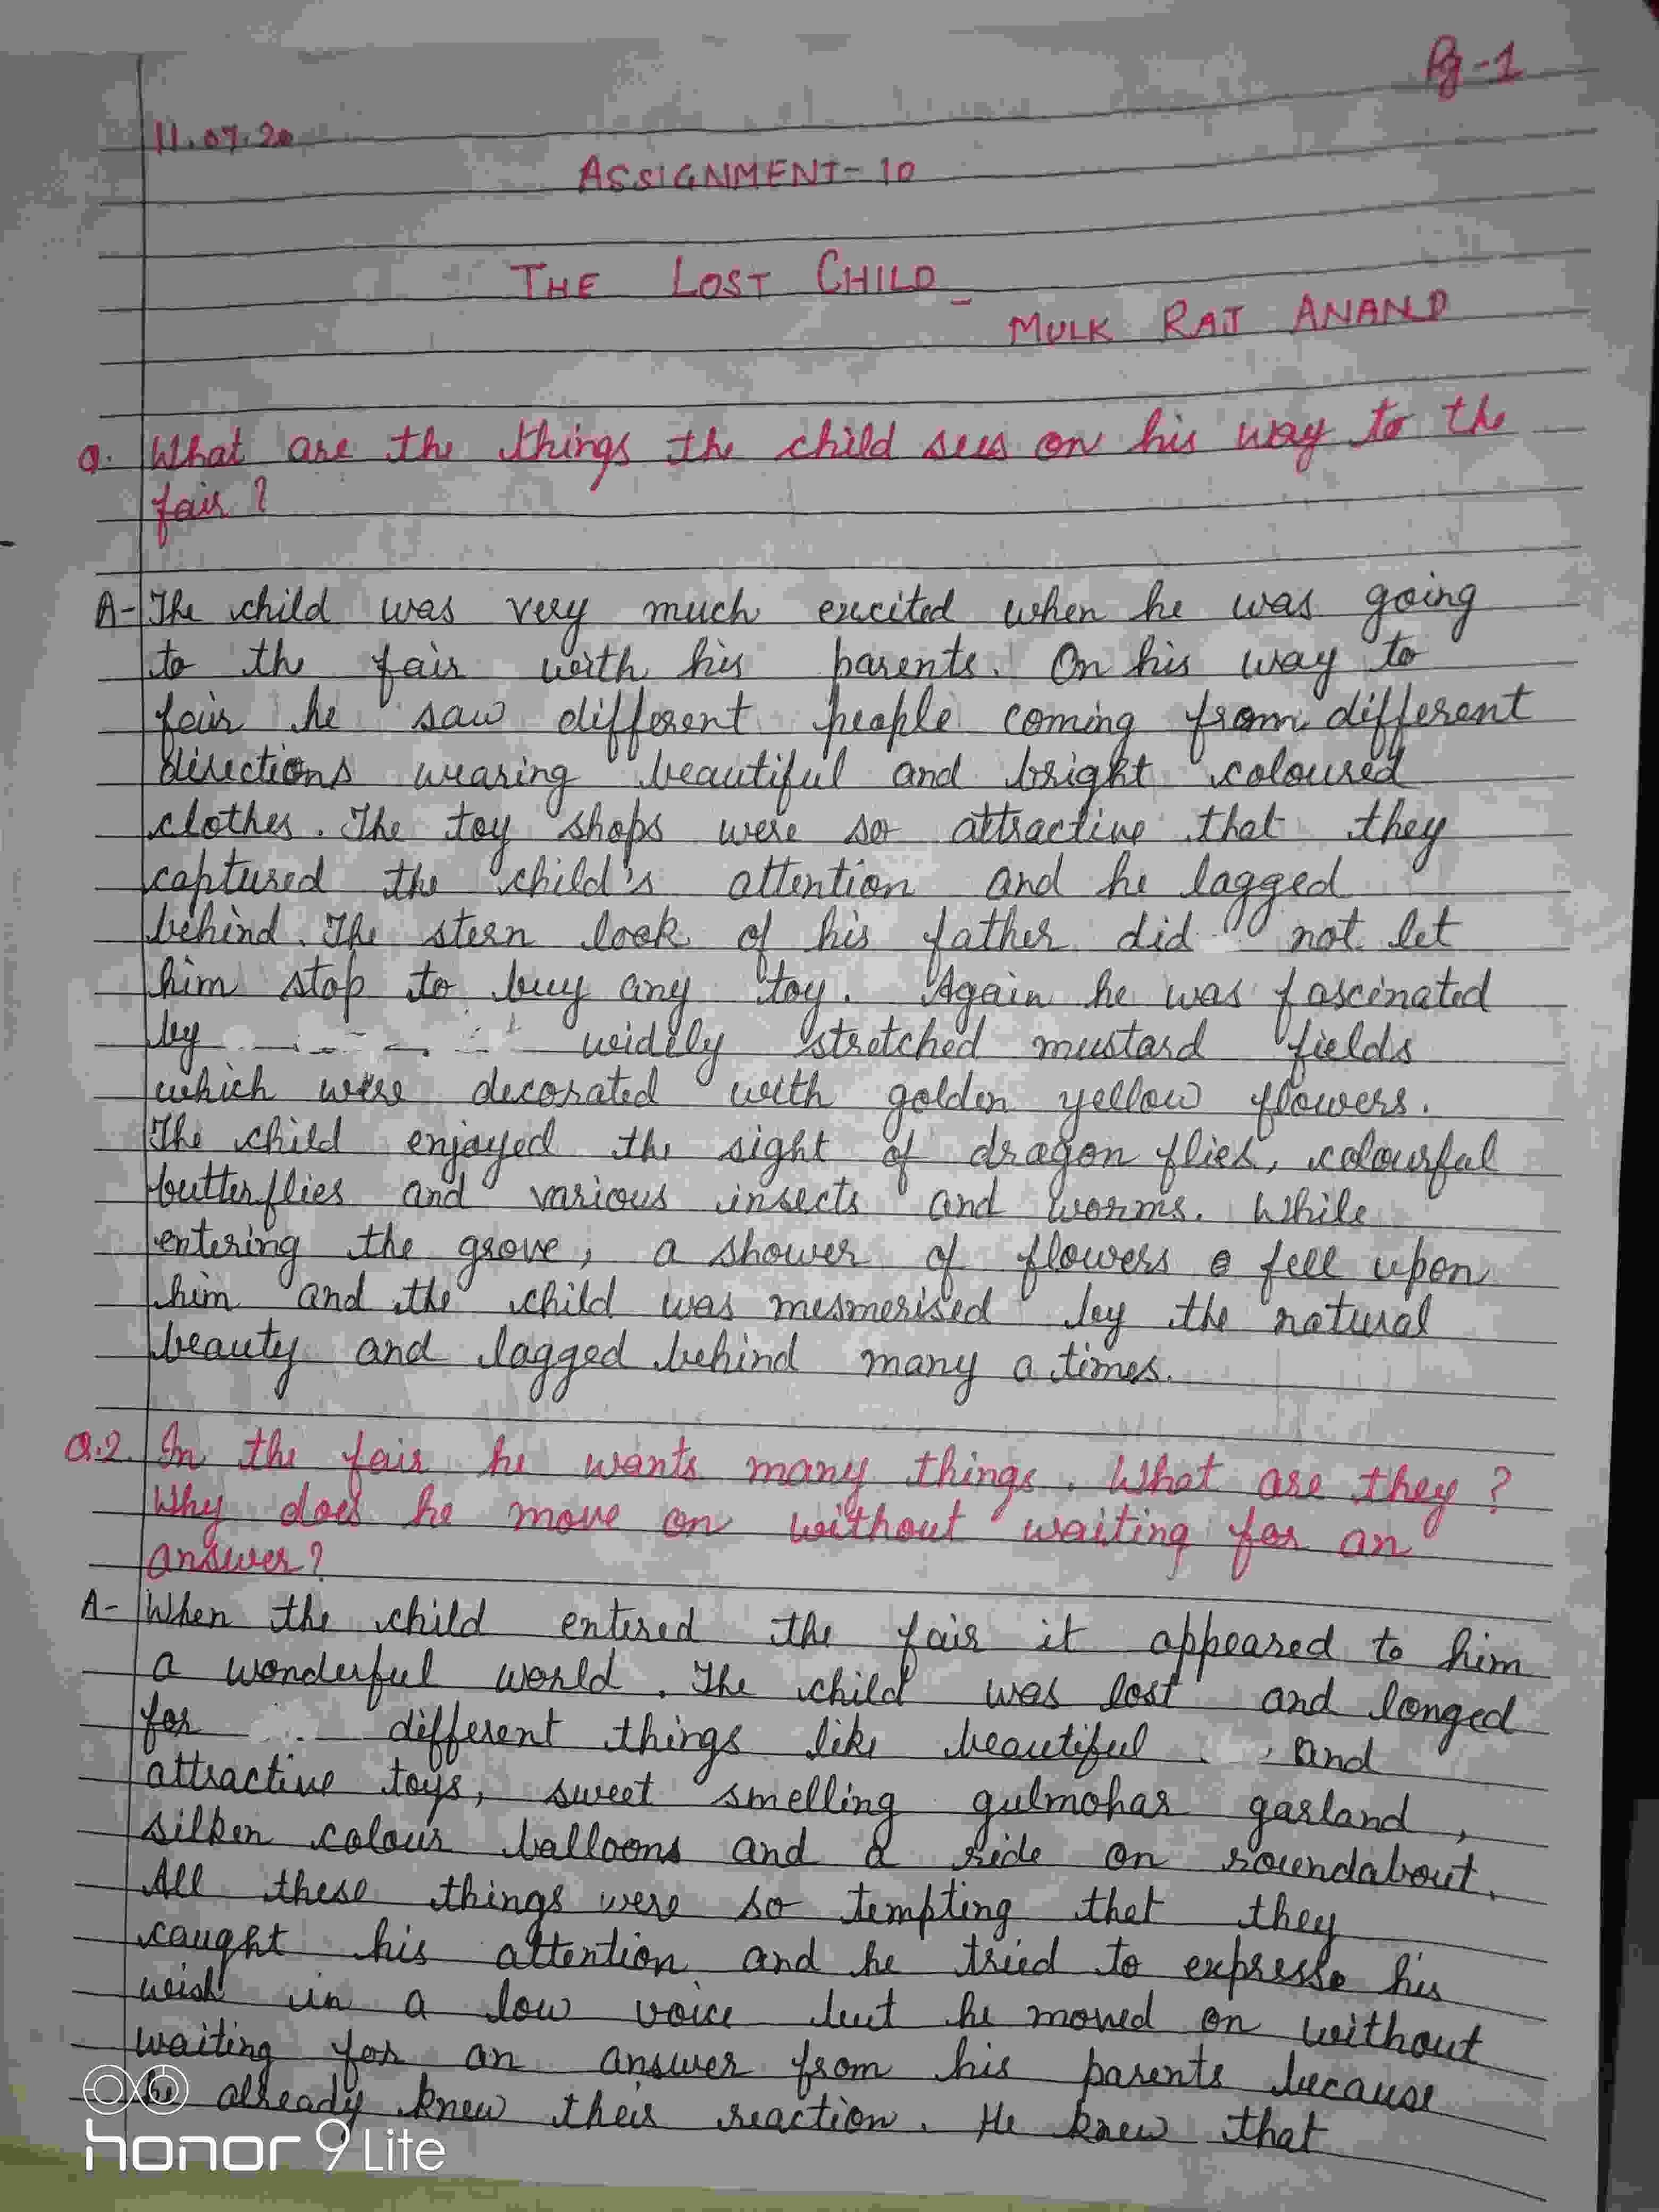 Pg-1
11.07.20
ASSIGNMENT-10
THE LOST CHILD -
MULK RAJ ANAND
Q. What are the things the child sees on his way to the
fair?
A- The child was very much excited when he was going
to the fair with his parents. On his way to
fair he saw different people coming from different
directions wearing beautiful and bright coloured
clothes. The toy shops were so attractive that they
captured the child's attention and he lagged
behind. The stern look of his father did not let
him stop to buy any toy. Again he was fascinated
by widely stretched mustard fields
which were decorated with golden yellow flowers.
The child enjoyed the sight of dragon flies, colourful
butterflies and various insects and worms. While
entering the grove, a shower of flowers fell upon
him and the child was mesmerised by the natural
beauty and lagged behind many a times.
Q.2. In the fair he wants many things. What are they?
Why does he move on without waiting for an
answer?
A- When the child entered the fair it appeared to him
a wonderful world. The child was lost and longed
for different things like beautiful and
attractive toys, sweet smelling gulmohar garland,
silken colour balloons and a ride on roundabout.
All these things were so tempting that they
caught his attention and he tried to express his
wish in a low voice but he moved on without
waiting for an answer from his parents because
he already knew their reaction. He knew that
honor 9 Lite